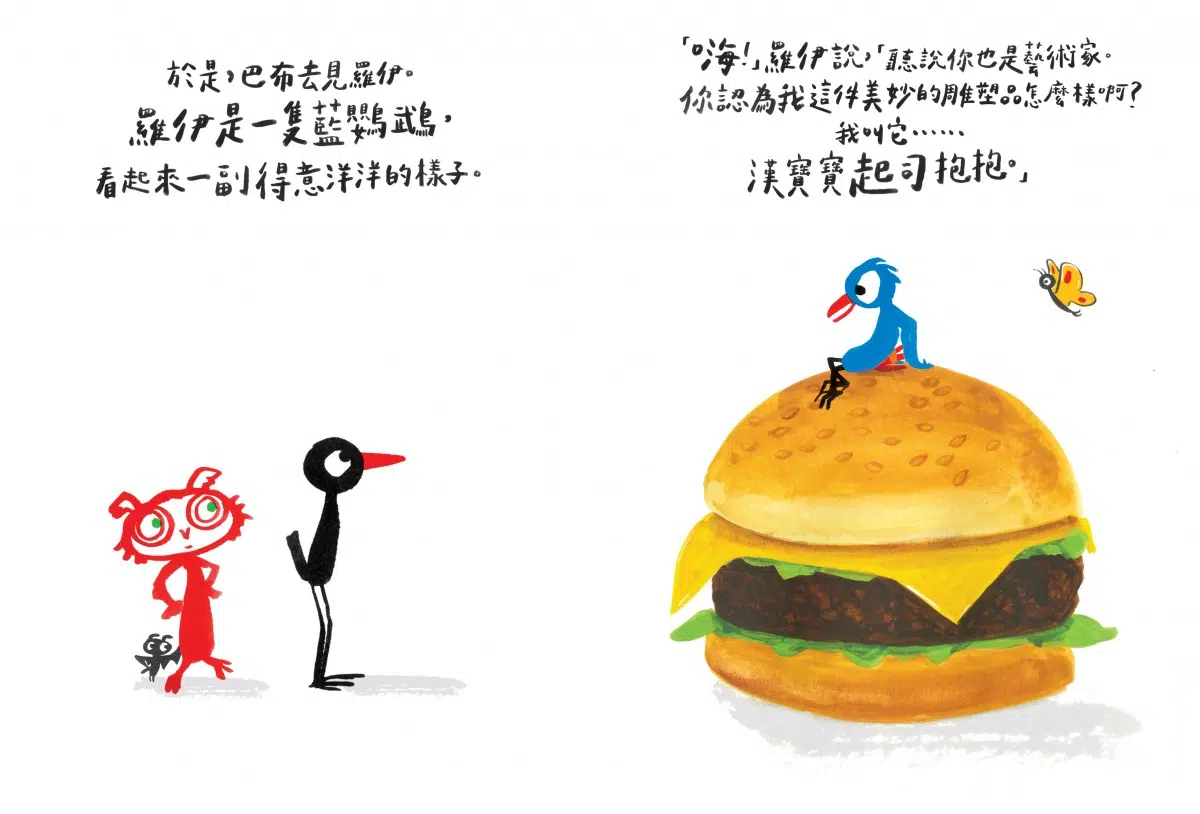 於是，巴布去見羅伊。
羅伊是一隻藍鸚鵡，
看起來一副得意洋洋的樣子。
「嗨！」羅伊說，「聽說你也是藝術家。
你認為我這件美妙的雕塑品怎麼樣啊？
我叫它⋯⋯
漢寶寶起司抱抱。」